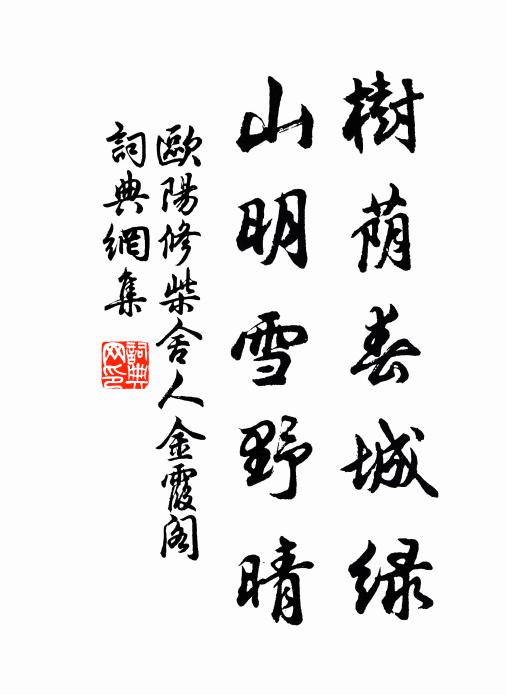 樹荫春城绿
山明雪野晴
歐陽修柴舍人金霞阁
詞典網集
詞典
网印